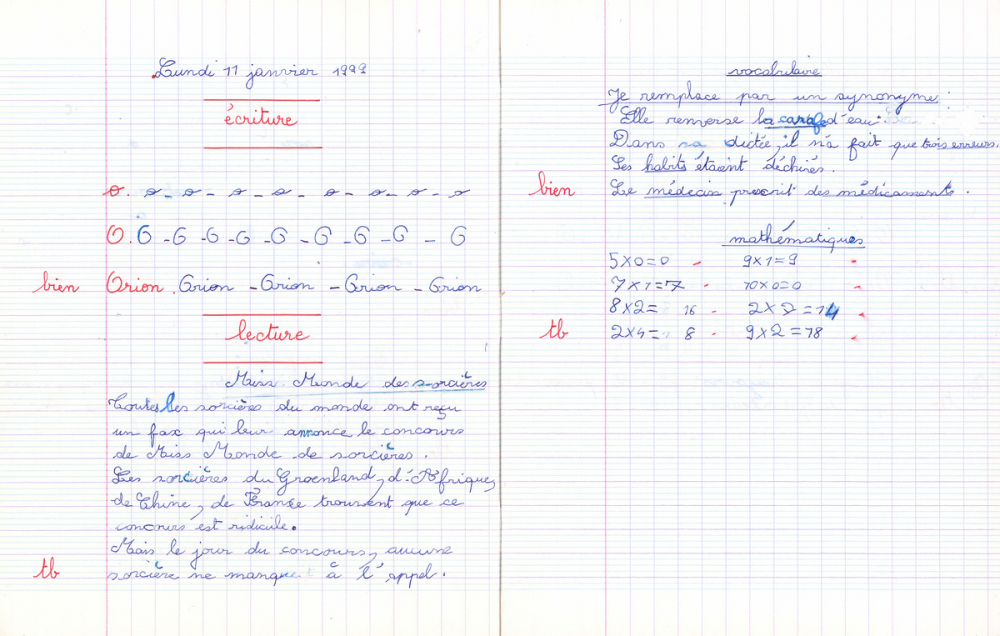 Lundi 11 janvier 1999
écriture
o. o - o - o - o - o - o - o - o
O. O - O - O - O - O - O - O - O - O
bien Orion. Orion - Orion - Orion - Orion
lecture
Miss Monde des sorcières
Toutes les sorcières du monde ont reçu
un fax qui leur annonce le concours
de Miss Monde de sorcières.
Les sorcières du Groenland, d'Afrique,
de Chine, de France trouvent que ce
concours est ridicule.
Mais le jour du concours, aucune
tb sorcière ne manque à l'appel.
vocabulaire
Je remplace par un synonyme :
Elle renverse la carafe d'eau.
Dans sa dictée, il n'a fait que trois erreurs.
Ses habits étaient déchirés.
bien Le médecin prescrit des médicaments.
mathématiques
5x0=0 9x1=9
7x1=7 10x0=0
8x2= 16 2x7=14
tb 2x4= 8 9x2=18